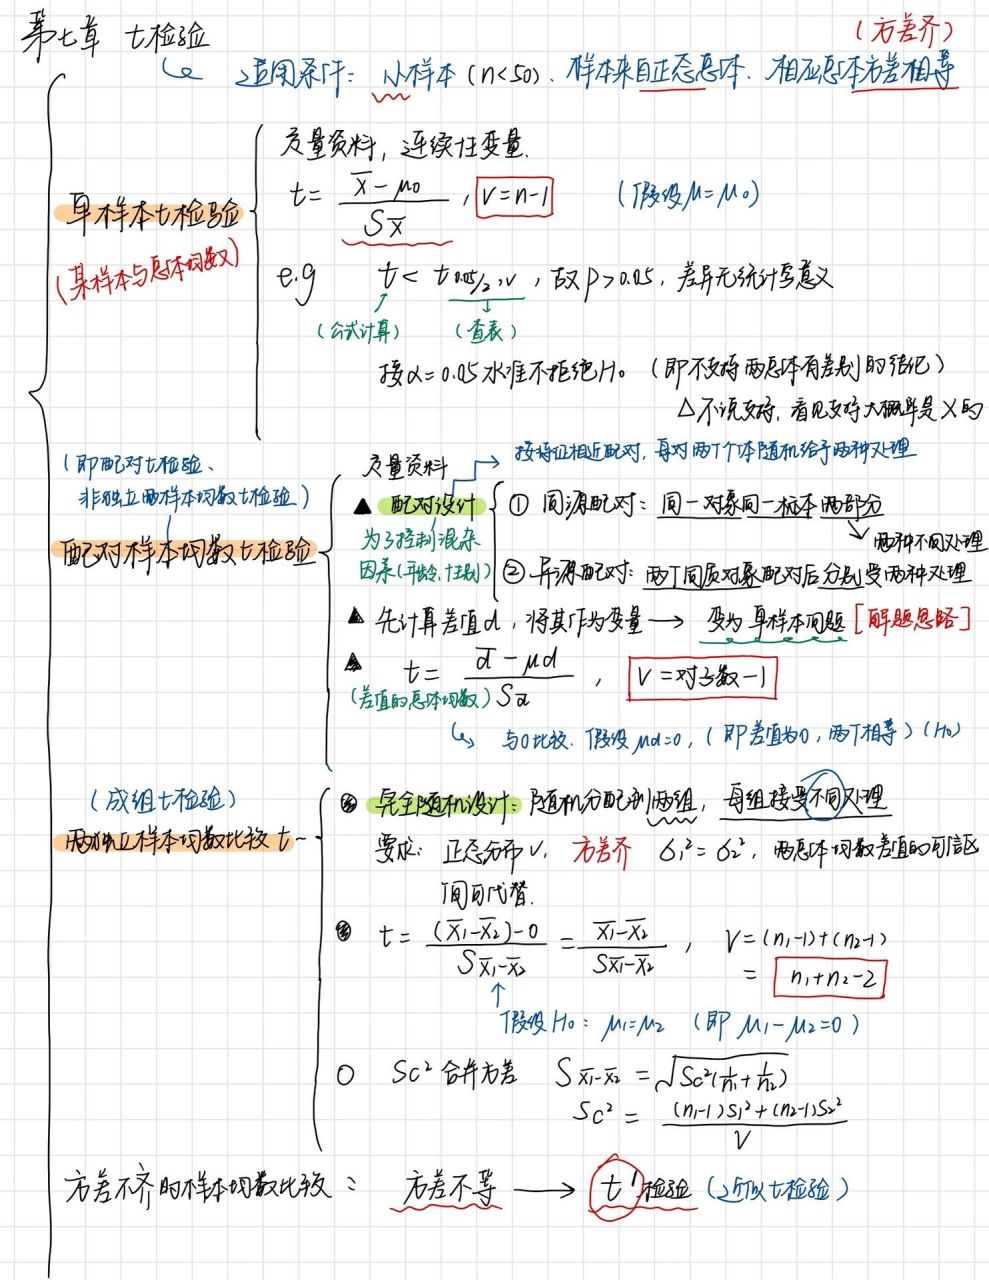 第七章 七检验
(方差齐)
适用条件: 小样本(n<50). 样本来自正态总体. 相应总体方差相等
定量资料, 连续性变量.
单样本t检验
(某样本与总体均数)
t= (x̄-μ₀)/Sx̄ , ν=n-1 (假设μ=μ₀)
e.g t< t0.05/2,ν , 故P>0.05, 差异无统计学意义
(公式计算) (查表)
按α=0.05水准不拒绝H₀ (即不支持两总体有差别的结论)
△不说支持,
(即配对t检验、
非独立两样本均数t检验)
配对样本均数t检验
定量资料
按特征相近配对, 每对两个个体随机给予两种处理
▲ 配对设计
为了控制混杂
因素(年龄、性别)
① 同源配对: 同一对象同一标本两部分
两种不同处理
② 异源配对: 两个同质对象配对后分别受两种处理
▲ 先计算差值d, 将其作为变量 → 变为单样本问题 [解题思路]
▲ t= (d̄-μd)/Sd̄ , ν=对子数-1
(差值的总体均数)
与0比较. 假设μd=0, (即差值为0, 两个相等) (H₀)
(成组t检验)
两独立样本均数比较t
完全随机设计: 随机分配到两组, 每组接受不同处理
要求: 正态分布ν, 方差齐 σ₁²=σ₂², 两总体均数差值的可信区
间可代替.
t= ((x̄₁-x̄₂)-0)/Sx̄₁-x̄₂ = (x̄₁-x̄₂)/Sx̄₁-x̄₂ , ν=(n₁-1)+(n₂-1)
= n₁+n₂-2
假设H₀: μ₁=μ₂ (即μ₁-μ₂=0)
○ Sc² 合并方差 Sx̄₁-x̄₂ = √(Sc²(1/n₁+1/n₂))
Sc² = ((n₁-1)S₁²+(n₂-1)S₂²)/ν
方差不齐的样本均数比较: 方差不等 → t'检验 (近似t检验)